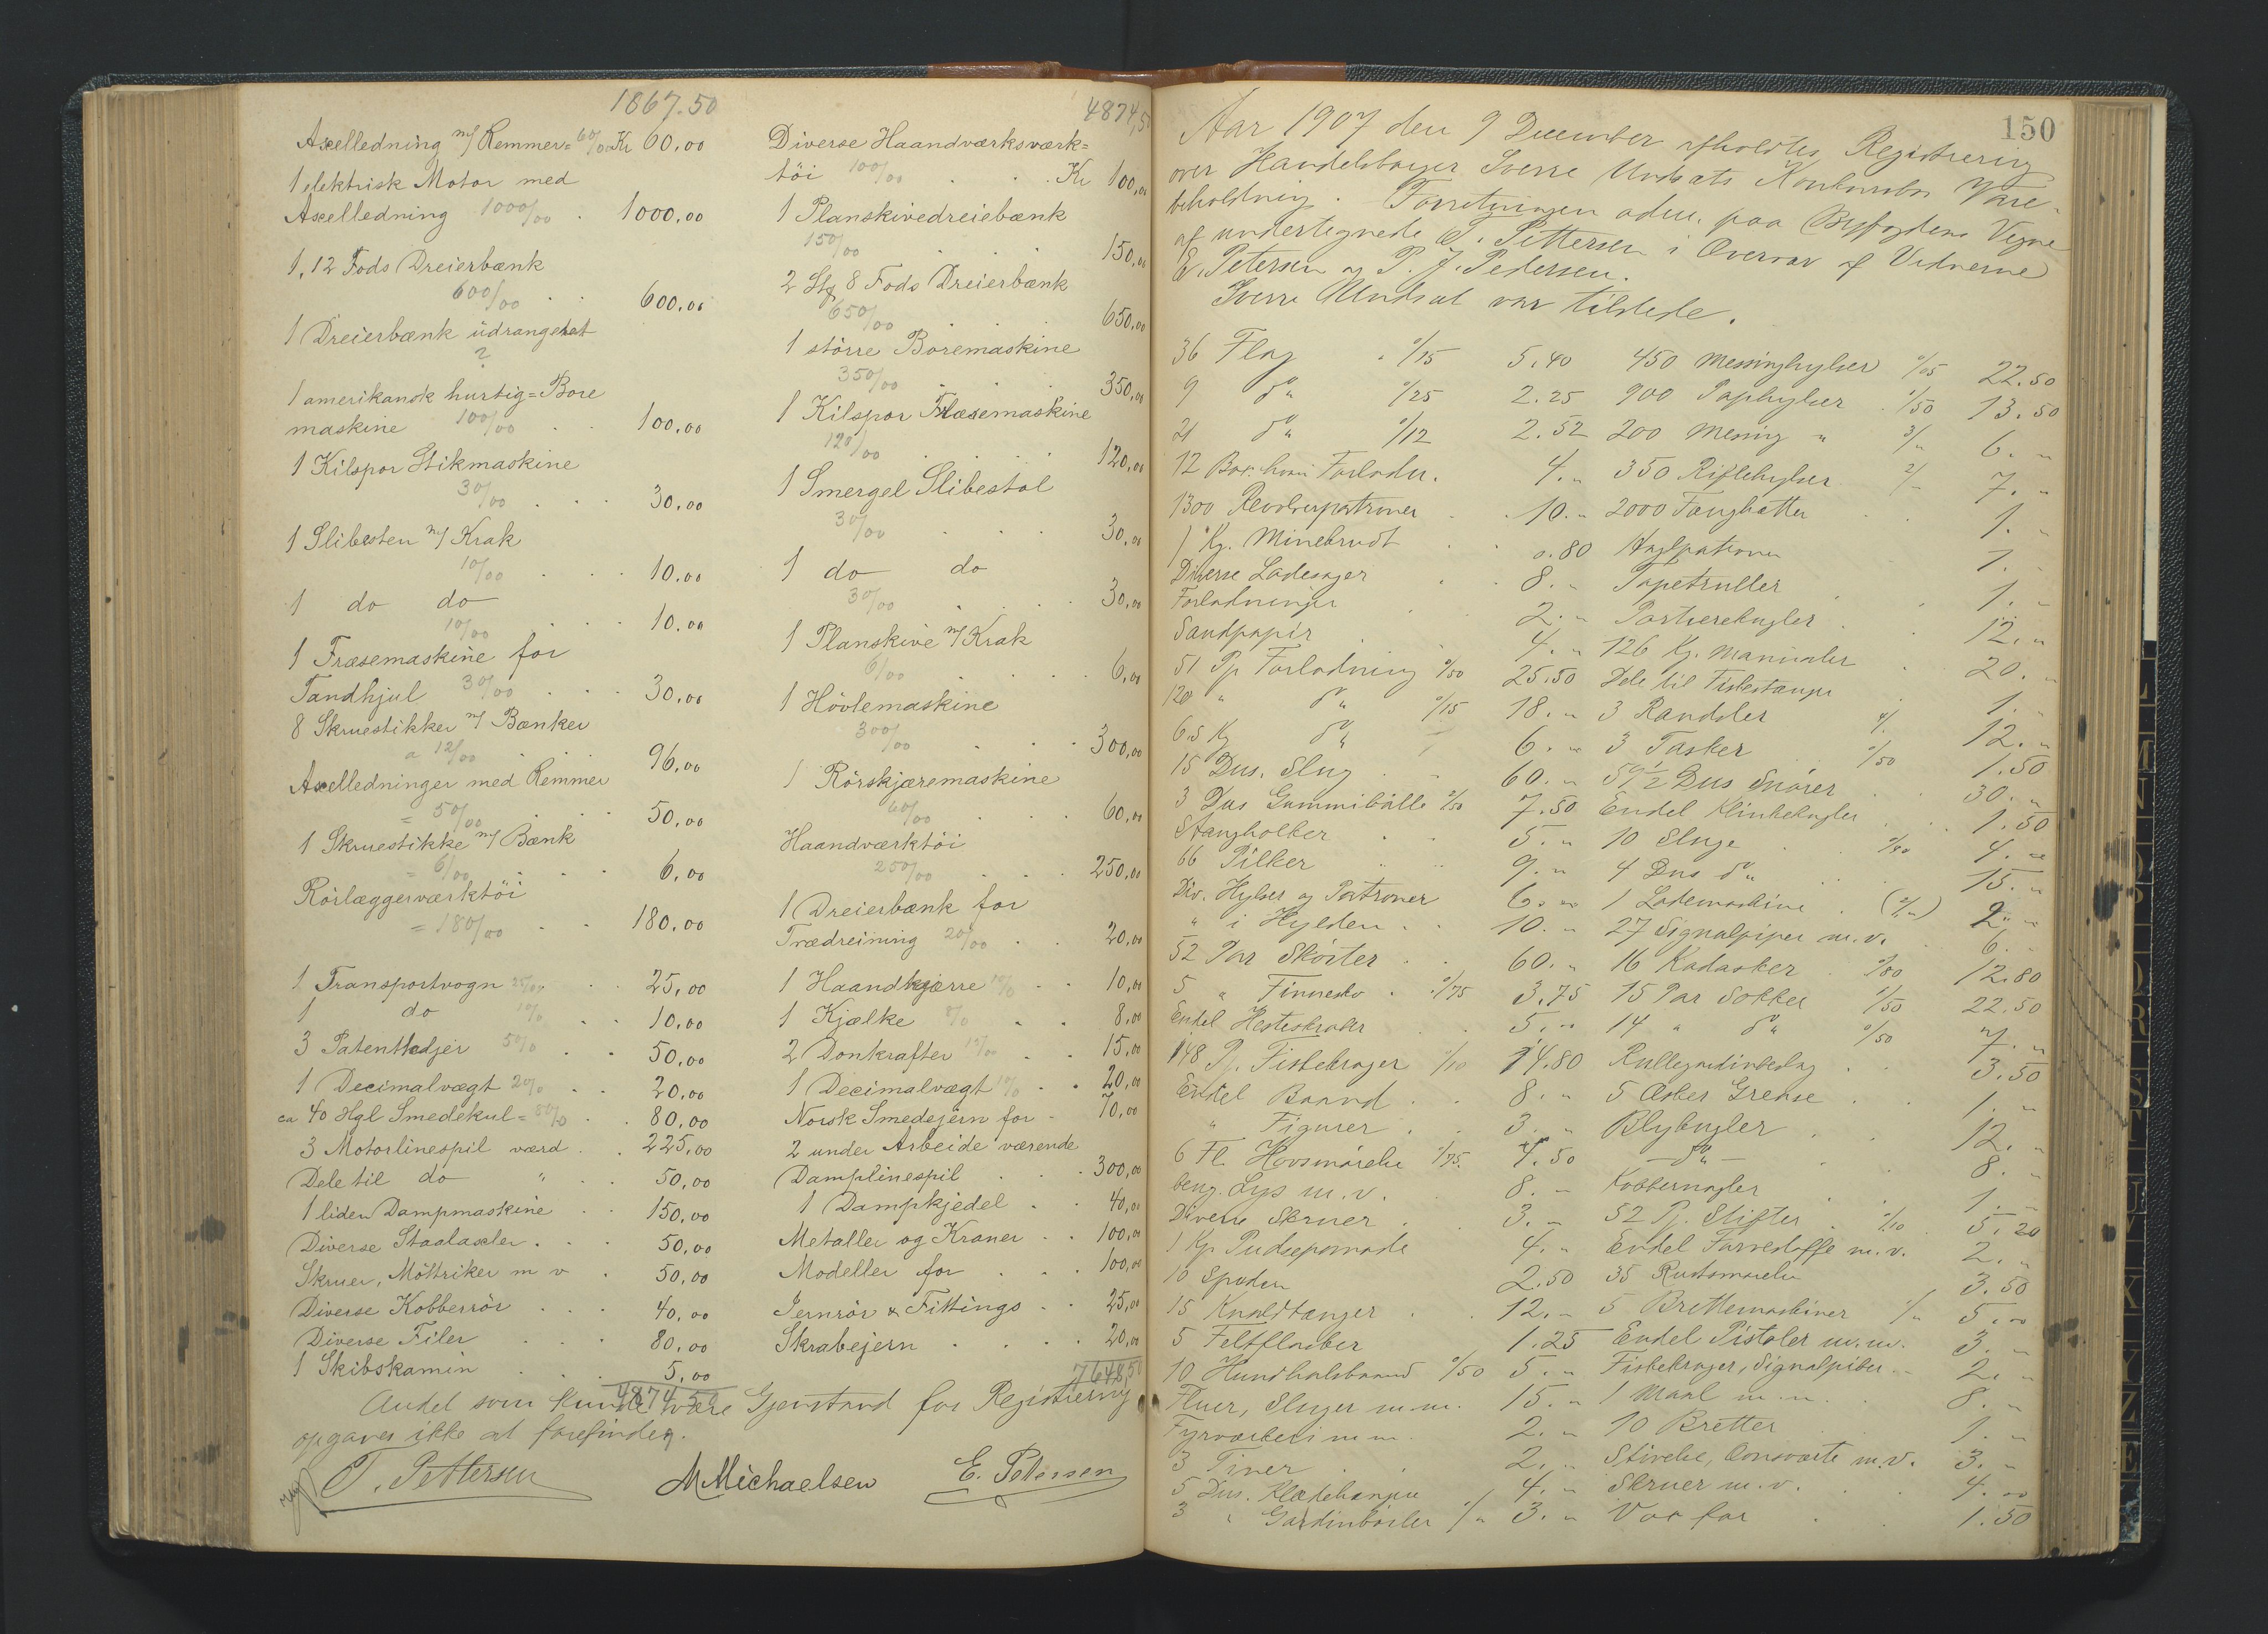 1867.50
Axelledning m/ Remmer = 60/00 Kr 60,00
1 elektrisk Motor med
Axelledning 1000/00 . 1000,00
1, 12 Fods Dreierbænk
600/00 . . 600,00
1 Dreierbænk üdrangeret
?
1 amerikansk hurtig=Bore
maskine 100/00 . . 100,00
1 Kilspor Stikmaskine
30/00 . . 30,00
1 Slibesten m/ Krak
10/00 . . . 10,00
1 do do
10/00 . . . 10,00
1 Fræsemaskine for
Tandhjul 30/00 . . . 30,00
8 Skruestikker m/ Bænker
a 12/00 . . 96,00
Axelledninger med Remmer
= 50/00 . . . 50,00
1 Skruestikke m/ Bænk
= 6/00 . . . 6,00
Rörlæggerværktöi
= 180/00 . . 180,00
1 Transportvogn 25/00 . . 25,00
1 do 10/0 . . 10,00
3 Patenttedjer 50/0 . . 50,00
1 Decimalvægt 20/0 . . 20,00
ca 40 Hgl Smedekul = 80/0 . . 80,00
3 Motorlinespil værd . . 225,00
Dele til do " . . 50,00
1 liden Dampmaskine . . 150,00
Diverse Staalaxler . . . 50,00
Skruer, Möttriker m v . 50,00
Diverse Kobberrör . . . 40,00
Diverse Filer . . . 80,00
1 Skibskamin . . . 5,00
4874,50
4874,5
Diverse Haandværksværk=
töi 100/00 . . . Kr 100,00
1 Planskivedreiebænk
150/00 . . . 150,00
2 Stk 8 Fods Dreierbænk
650/00 . . . 650,00
1 större Boremaskine
350/00 . . . 350,00
1 Kilspor Fræsemaskine
120/00 . . . . 120,00
1 Smergel Slibestol
30/00 . . . 30,00
1 do do
30/00 . . . 30,00
1 Planskive m/ Krak
6/00 . . . . 6,00
1 Hövlemaskine
300/00 . . . 300,00
1 Rörskjæremaskine
60/00 . . . 60,00
Haandværktöi
250/00 . . . 250,00
1 Dreierbænk for
Trædreining 20/00 . . 20,00
1 Haandkjærre 10/0 . . 10,00
1 Kjælke 8/0 . . 8,00
2 Donkrafter 15/00 . . 15,00
1 Decimalvægt . . 20,00
Norsk Smedejern for - 70,00
2 under Arbeide værende
Damplinespil . . . 300,00
1 Dampkjedel . . 40,00
Metaller og Kraner . . 100,00
Modeller for . . . 100,00
Jernrör & Fittings . . 25,00
Skrabejern . . . . 20,00
7648,50
Andet som kunde være Gjenstand for Registrering
opgaves ikke at forefindes.
T. Pettersen M Michaelsen E. Petersen
150
Aar 1907 den 9 December afholdtes Registrering
over Handelsborger Sverre Undsats Konkursbos Vare-
beholdning. Forretningen adm. paa Byfogdens Vegne
af undertegnede T. Pettersen i Overvær af Vidnerne
E. Petersen og P. J. Pedersen.
Sverre Undsat var tilstede.
36 Flag . "/15 5.40
9 do "/25 2.25
21 do "/12 2.52
12 Forlader. 4."
1300 Revolverpatroner . . 10."
1 Kg. Minekrudt . . 0.80
Diverse Ladesager . . 8."
Forladninger . . 2."
Sandpapir . . 4."
51 Pp Forladning "/50 25.50
120 " do "/15 18."
6.5 Kg do 6."
15 Dus. Slug . . 60."
3 Dus Gummibolle 2/50 7.50
Stangholker . . 5."
66 Pilker . . 9."
Div. Hylser og Patroner 6."
" i Hylden . . 10."
52 Par Sköiter . . 60."
5 " Finnesko . "/75 3.75
Endel Hesteskraber . . 5."
148 Pj. Fiskekroger "/10 14.80
Endel Baand . . 8."
" Figurer . . 3."
6 Fl. Hovsmörelse "/75 4.50
beng. Lys m.v. . 8."
Diverse Skruer . . 3."
1 Kp Pudsepomade 4."
10 Spader 2.50
15 Knaldtanger . . 12."
5 Feltflasker 1.25
10 Hundhalsbaand "/50 5."
Fluer, Sluger m.m. 15."
Fyrværkeri m.m. 2."
3 Tiner . . 2."
5 Dus. Klædehænger 4."
3 " Gardinböiler 1/" 3."
450 Messinghylser "/05 22.50
900 Paphylser . 1/50 13.50
200 Messing " 3/" 6."
350 Riflehylser 2/" 7."
2000 Fænghætter . . 1."
Haglpatroner 1."
Tapetruller . . 1."
Portierekugler . . 12."
126 Kg. Manualer . 20."
Dele til Fiskestænger . 1."
3 Randsler 4/. 12."
3 Tasker "/50 1.50
59 1/2 Dus Snörer . . 30."
Endel Klinkekugler . . 1.50
10 Sluge . "/40 4."
4 Dus do . . 15."
1 Lademaskine . (2/") 2."
27 Signalpiper m.v. 6."
16 Kadasker . "/80 12.80
15 Par Sokker 1/50 22.50
14 " do "/50 7."
Rullegardinbeslag . . 3.50
5 Æsker Grense . . 1."
Blykugler . . 12."
— do — . 8."
Kobbernagler . . 1."
52 Pj. Stifter . "/10 5.20
Endel Farvestoffe m.v. 2."
35 Rustsmörelse 3.50
5 Brettemaskiner 1/" 5."
Endel Pistoler m.m. 3."
Fiskekroger, Signalpiber . . 2."
1 Maal m.m. . . 8."
10 Bretter . . 1."
Stivelse, Ovnsværte m.v. 3."
Skruer m.v. . . 4."
Vox for . . 1.50